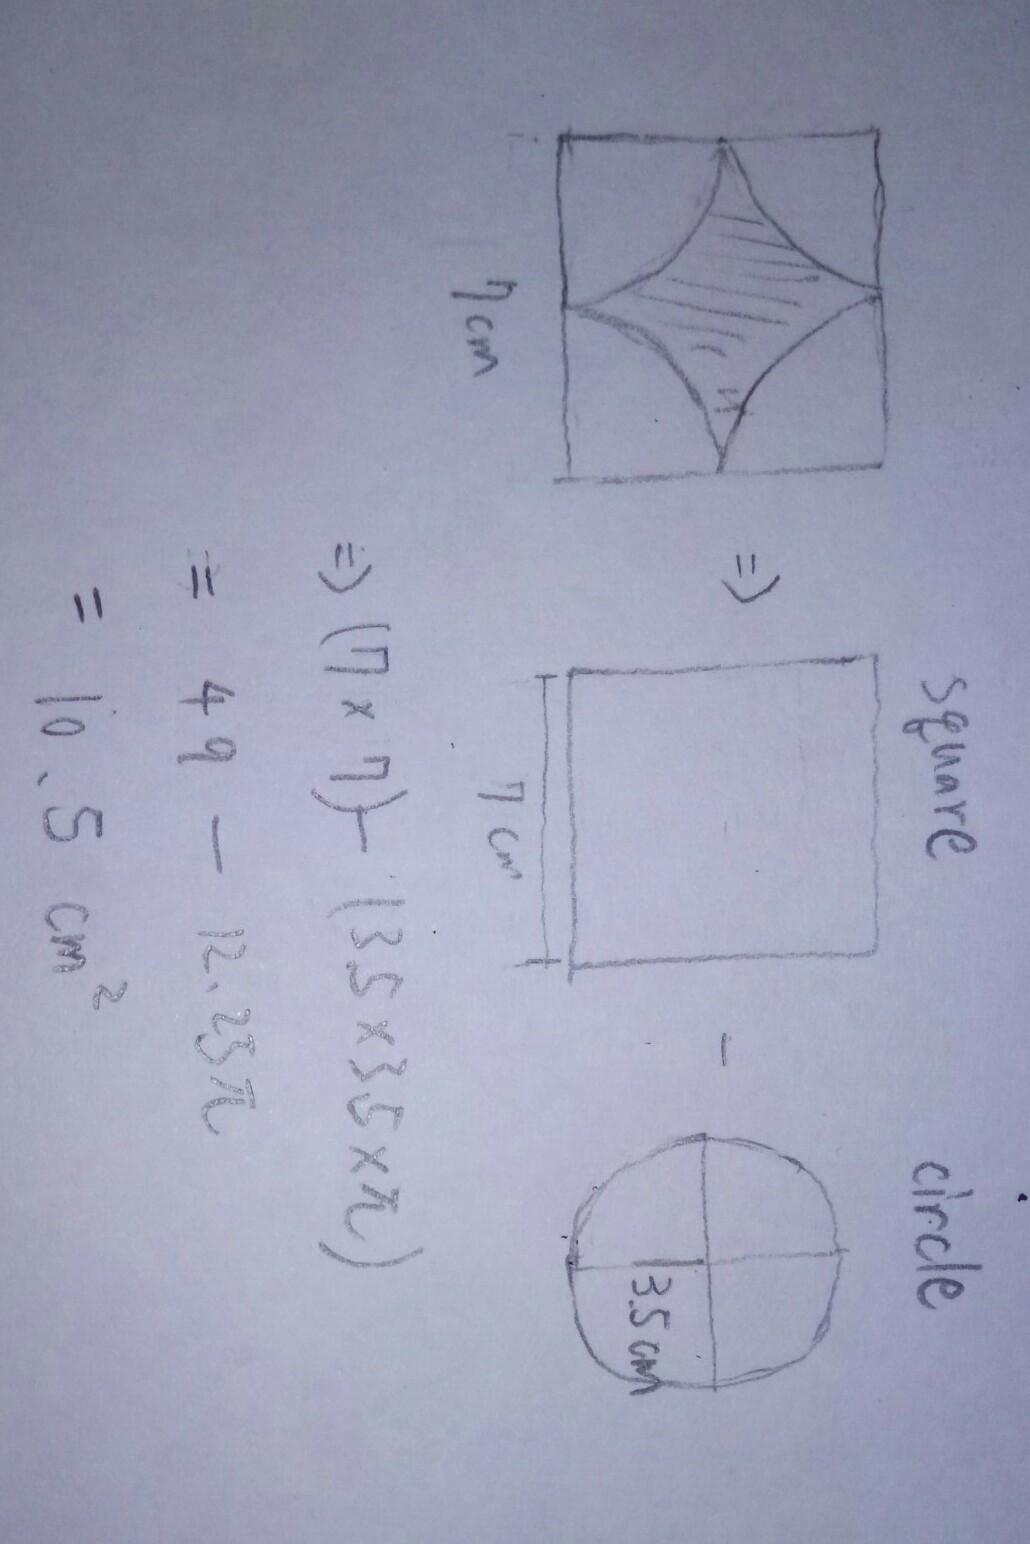 square circle
7 cm
⇒
7 cm
-
3.5 cm
⇒ (7 × 7) - (3.5 × 3.5 × π)
= 49 - 12.25π
= 10.5 cm²